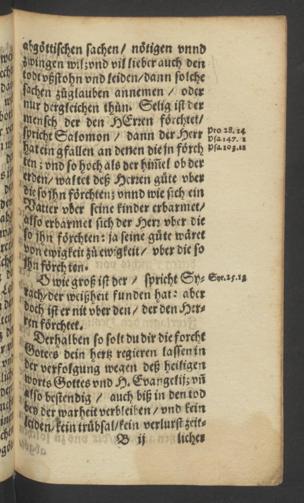 abgöttischen sachen / nötigen vnnd
zwingen wil: vnd vil lieber auch den
tod vßstohn vnd leiden / dann solche
sachen zůglauben annemen / oder
nur dergleichen thůn. Selig ist der
mensch der den HErren förchtet /
spricht Salomon / dann der Herr
hat ein gfallen an denen die jn förch
ten: vnd so hoch als der him̃el ob der
erden / waltet deß Herren güte vber
die so jhn förchten: vnnd wie sich ein
Vatter vber seine kinder erbarmet /
also erbarmet sich der Herr vber die
so jhn förchten: ja seine güte wäret
von ewigkeit zů ewigkeit / vber die so
jhn förchten.
Pro 28.14
Psa 147.2
Psa 103.11
O wie groß ist der / spricht Sy-
rach / der weißheit funden hat: aber
doch ist er nit vber den / der den Her-
ren förchtet.
Syr. 25.13
Derhalben so solt du dir die forcht
Gottes dein hertz regieren lassen in
der verfolgung wegen deß heiligen
worts Gottes vnd H. Evangelij: vñ
also bestendig / auch biß in den tod
bey der warheit verbleiben / vnd kein
leiden / kein trübsal / kein verlurst zeit-
B ij licher